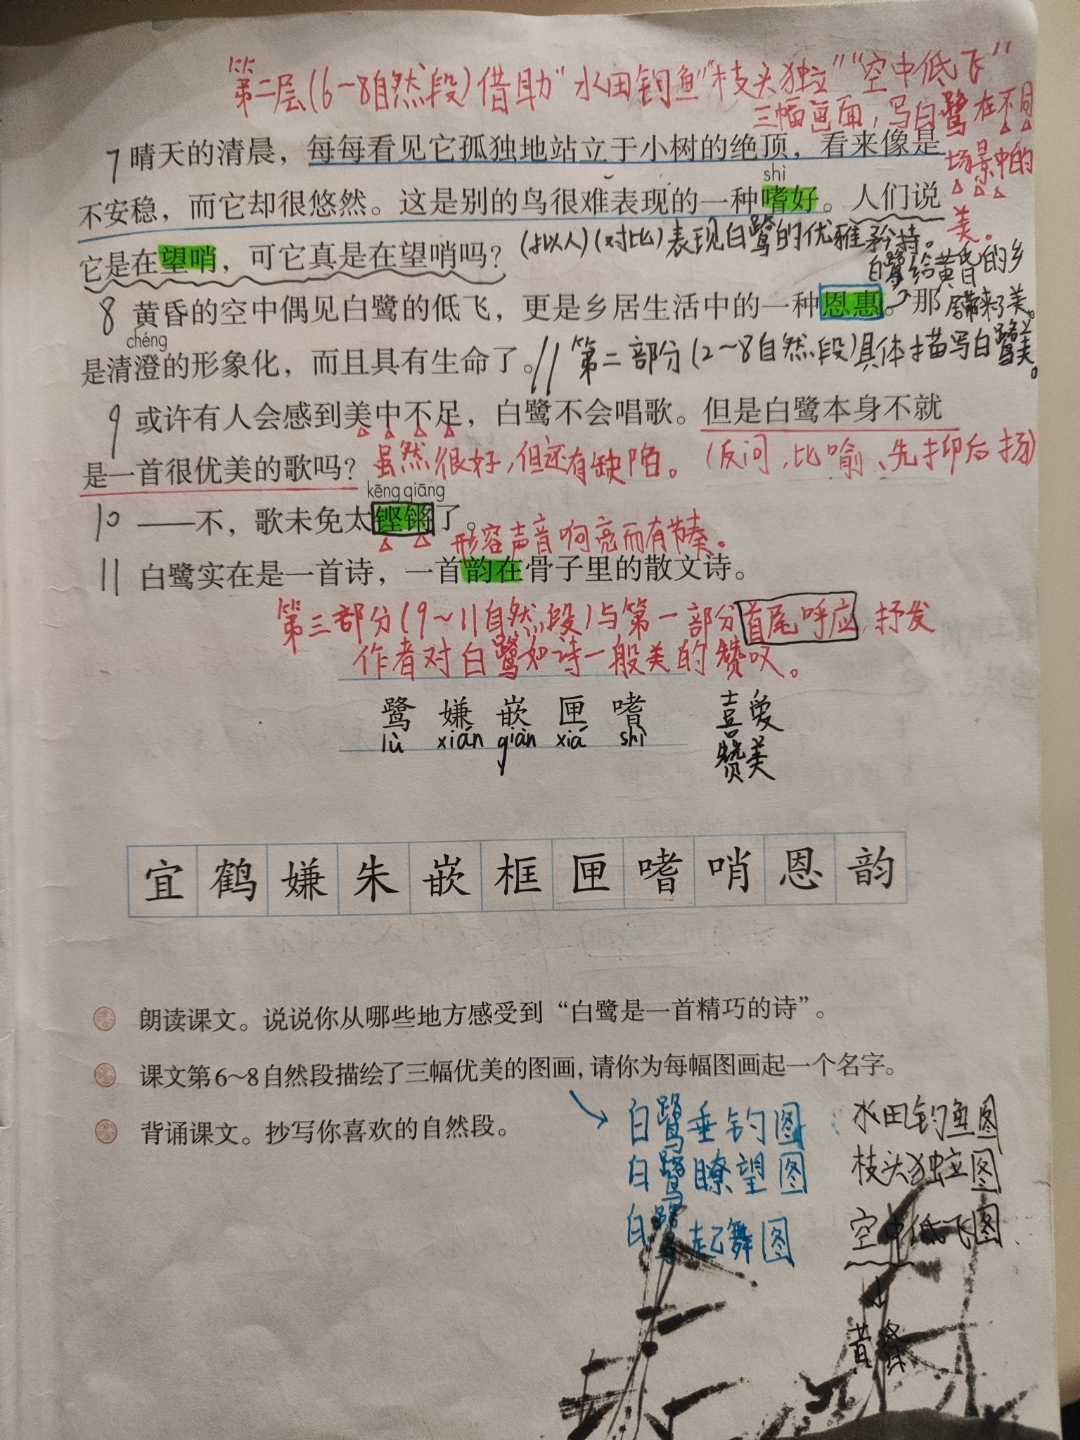 第二层(6-8自然段)借助"水田钓鱼""枝头独立""空中低飞"
三幅画面，写白鹭在不同
场景中的
美。
7 晴天的清晨，每每看见它孤独地站立于小树的绝顶，看来像是
shì
不安稳，而它却很悠然。这是别的鸟很难表现的一种嗜好。人们说
它是在望哨，可它真是在望哨吗？(拟人)(对比)表现白鹭的优雅矜持。
白鹭给黄昏的乡
居带来了美。
8 黄昏的空中偶见白鹭的低飞，更是乡居生活中的一种恩惠。那
chéng
是清澄的形象化，而且具有生命了。// 第二部分(2~8自然段)具体描写白鹭美。
9 或许有人会感到美中不足，白鹭不会唱歌。但是白鹭本身不就
是一首很优美的歌吗？虽然很好，但还有缺陷。(反问、比喻、先抑后扬)
kēng qiāng
10 ——不，歌未免太铿锵了。
形容声音响亮而有节奏。
11 白鹭实在是一首诗，一首韵在骨子里的散文诗。
第三部分(9~11自然段)与第一部分首尾呼应，抒发
作者对白鹭如诗一般美的赞叹。
鹭 嫌 嵌 匣 嗜 喜爱
lù xián qiàn xiá shì 赞美
宜 鹤 嫌 朱 嵌 框 匣 嗜 哨 恩 韵
朗读课文。说说你从哪些地方感受到“白鹭是一首精巧的诗”。
课文第6～8自然段描绘了三幅优美的图画，请你为每幅图画起一个名字。
背诵课文。抄写你喜欢的自然段。
白鹭垂钓图 水田钓鱼图
白鹭瞭望图 枝头独立图
白鹭起舞图 空中低飞图